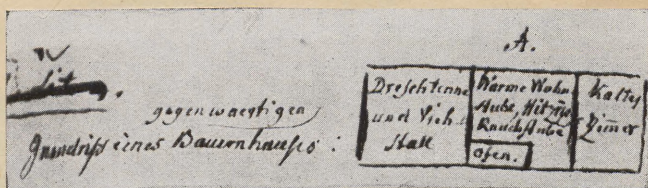 A.
gegenwaertigen
Grundriß eines Bauernhauses :
Dreschtenne
und Vieh
Stall
Warme Wohn
Stube,
Rauchstube
Ofen.
Kaltes
Zimer